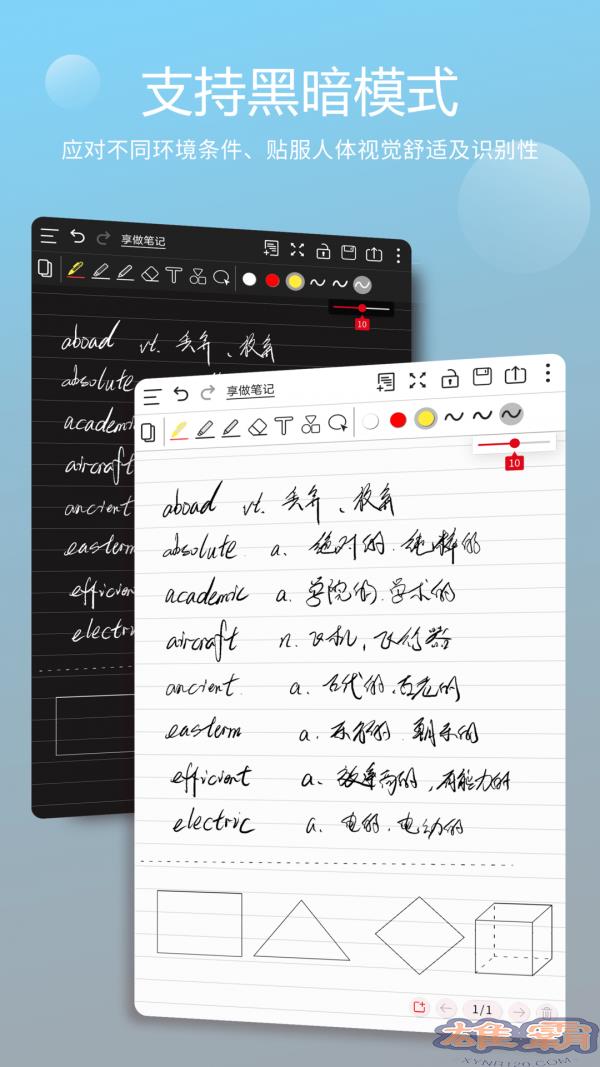 支持黑暗模式
应对不同环境条件、贴服人体视觉舒适及识别性
享做笔记
10
aboad vt. 丢弃、放弃
absolute
academic
aircraft
ancient
easterm
efficient
electric
享做笔记
10
aboad vt. 丢弃、放弃
absolute a. 绝对的.纯粹的
academic a. 学院的.学术的
aircraft n. 飞机,飞行器
ancient. a. 古代的.古老的
easterm a. 东部的.朝东的
efficient a. 效率高的,有能力的
electric a. 电的.电动的
1/1
雄霸
XYNH120.COM